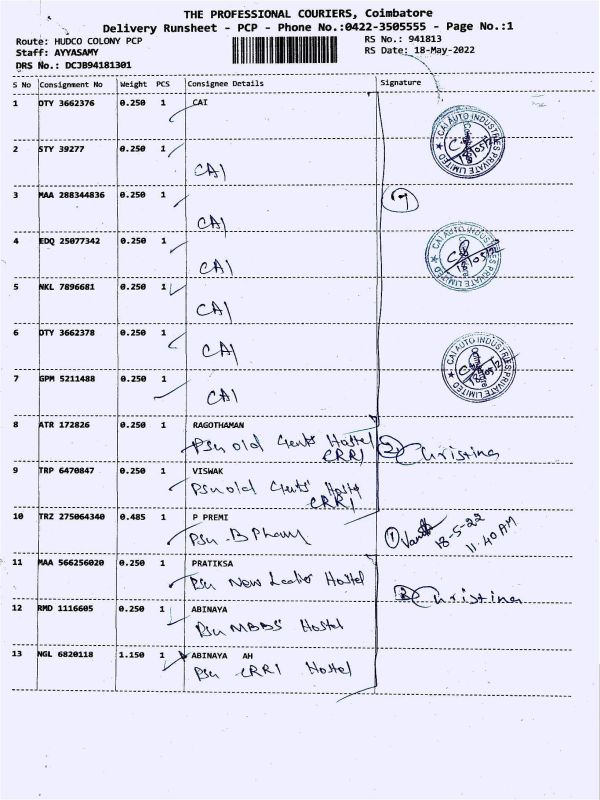 THE PROFESSIONAL COURIERS, Coimbatore
Delivery Runsheet - PCP - Phone No.:0422-3505555 - Page No.:1
Route: HUDCO COLONY PCP
RS No.: 941813
Staff: AYYASAMY
RS Date: 18-May-2022
DRS No.: DCJB94181301
S No Consignment No Weight PCS Consignee Details Signature
1 DTY 3662376 0.250 1 CAI
2 STY 39277 0.250 1
CAI
3 MAA 288344836 0.250 1
7
CAI
4 EDQ 25077342 0.250 1
CAI
5 NKL 7896681 0.250 1
CAI
6 DTY 3662378 0.250 1
CAI
7 GPM 5211488 0.250 1
CAI
CAI AUTO INDUSTRIES PRIVATE LIMITED
CAI AUTO INDUSTRIES PRIVATE LIMITED
CAI AUTO INDUSTRIES PRIVATE LIMITED
8 ATR 172826 0.250 1 RAGOTHAMAN
Psu old Gents Hostel
CRRI
2 Christina
9 TRP 6470847 0.250 1 VISWAK
Psu old Gents' Hostel
CRRI
10 TRZ 275064340 0.485 1 P PREMI
Psu - B Pharm
1
18-5-22
11.40 AM
11 MAA 566256020 0.250 1 PRATIKSA
Psu New Ladies Hostel
Christina
12 RMD 1116605 0.250 1 ABINAYA
Psu MBBS Hostel
13 NGL 6820118 1.150 1 ABINAYA AH
Psu CRRI Hostel